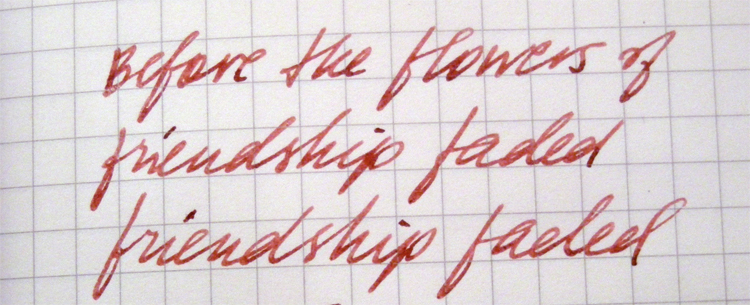 Before the flowers of
friendship faded
friendship faded